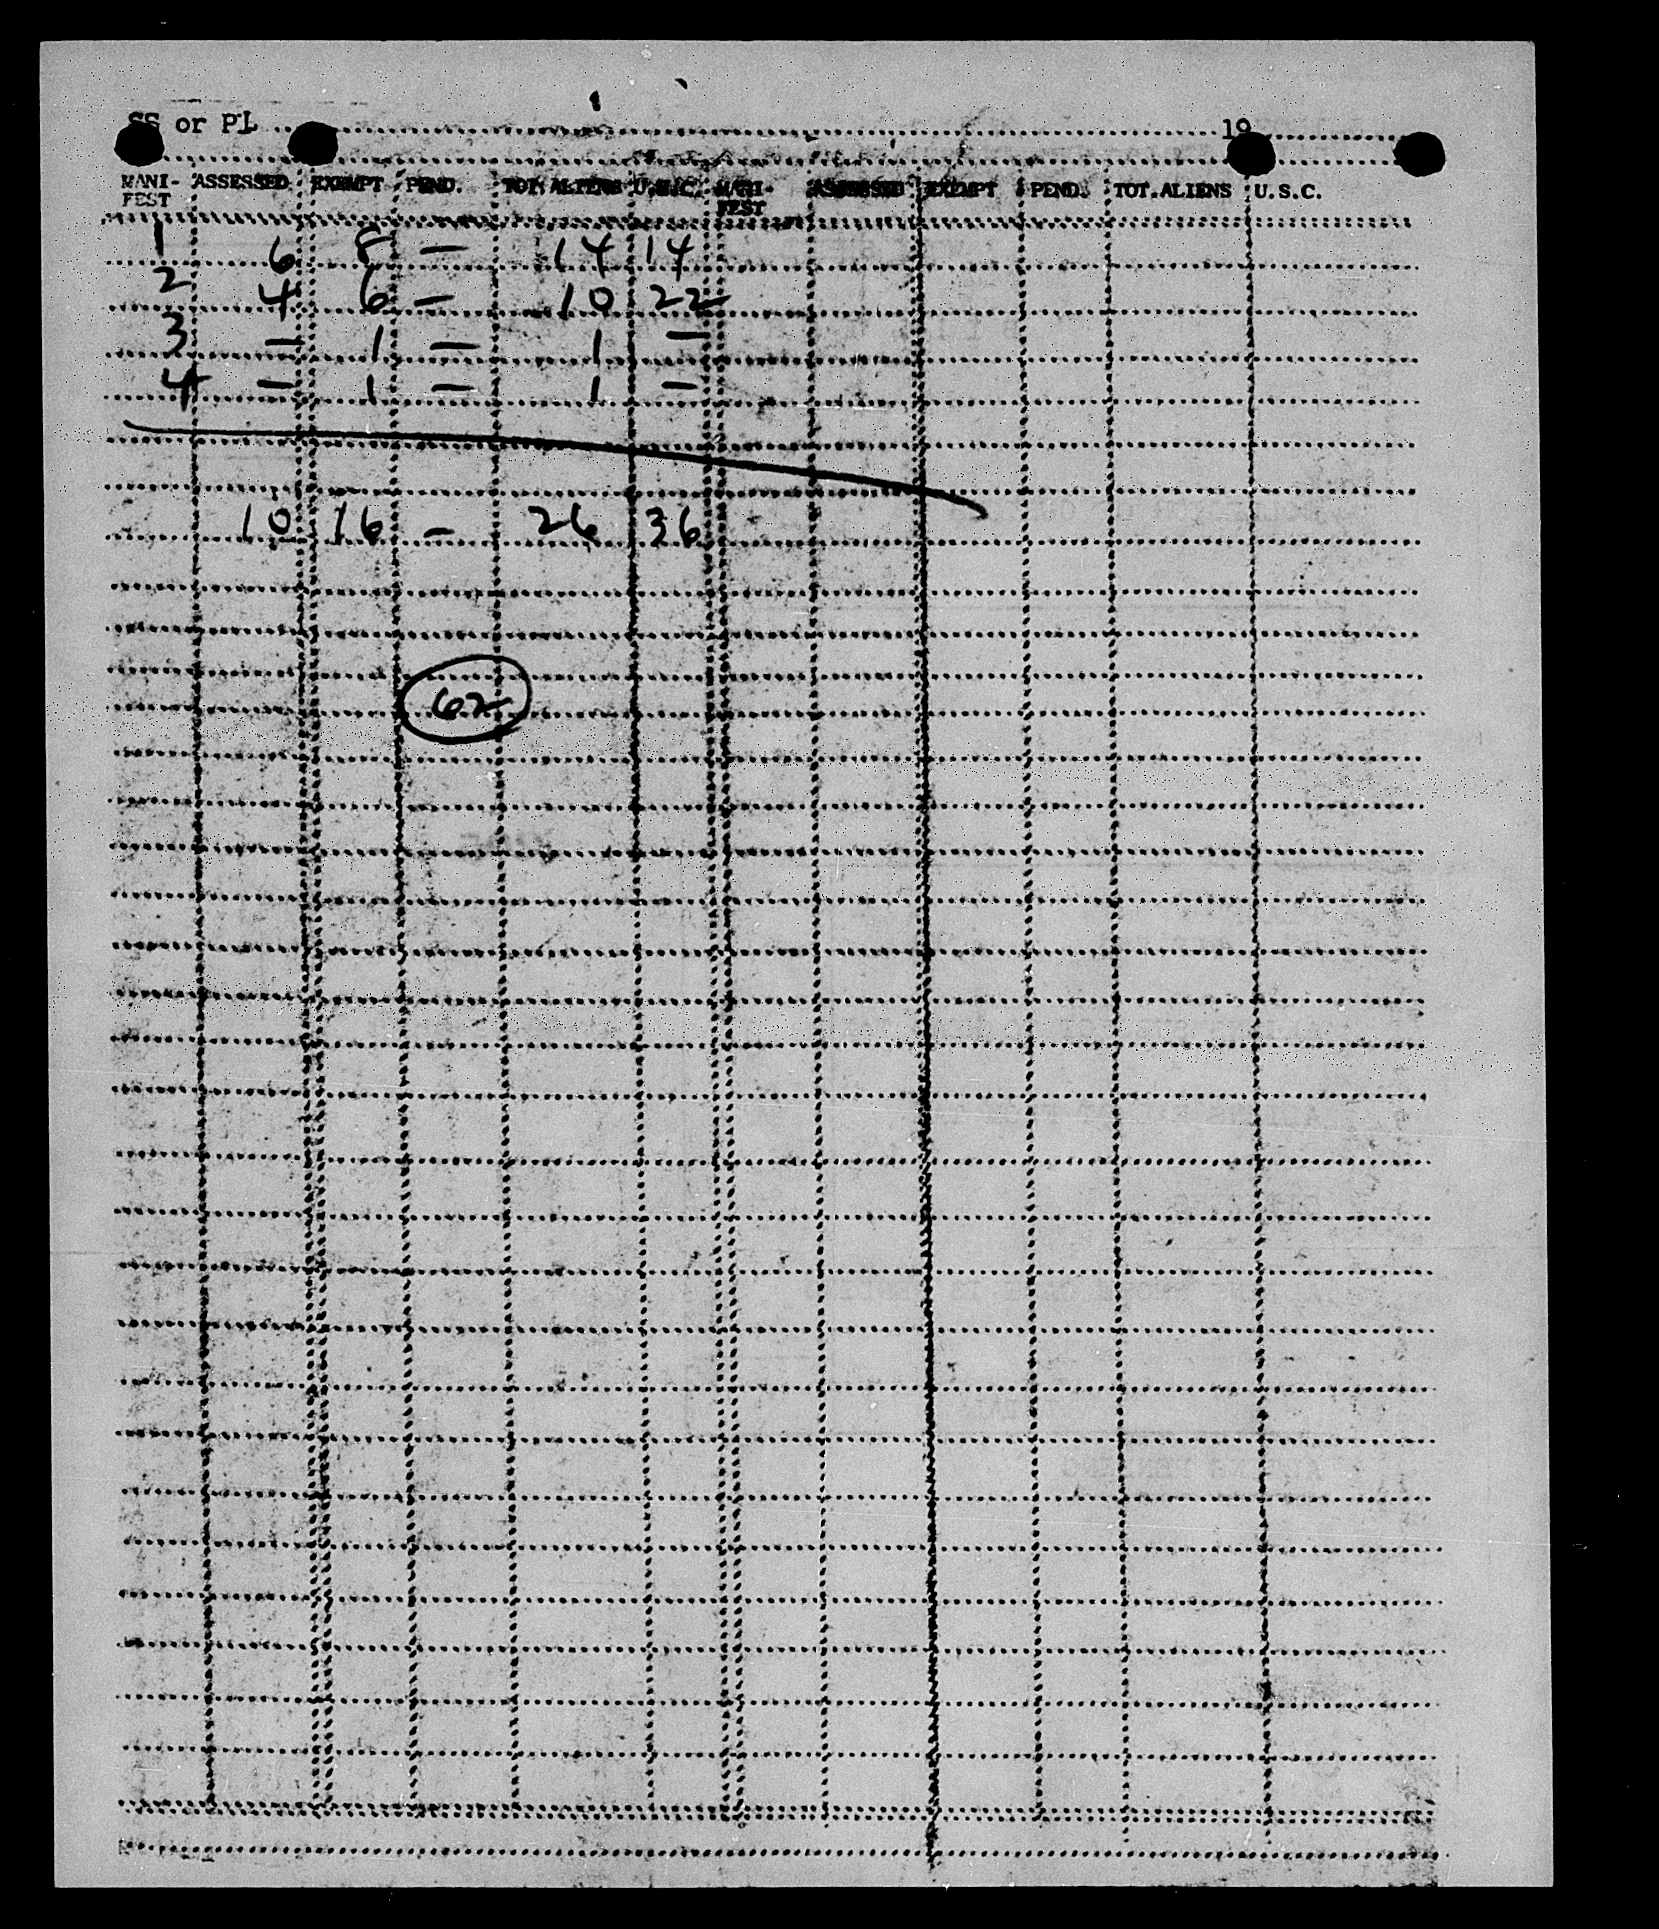 SS or Pl 19
MANI- ASSESSED EXEMPT PEND. TOT.ALIENS U.S.C. MANI- ASSESSED EXEMPT PEND. TOT.ALIENS U.S.C.
FEST FEST
1 6 8 — 14 14
2 4 6 — 10 22
3 — 1 — 1 —
4 — 1 — 1 —
10 16 — 26 36
62